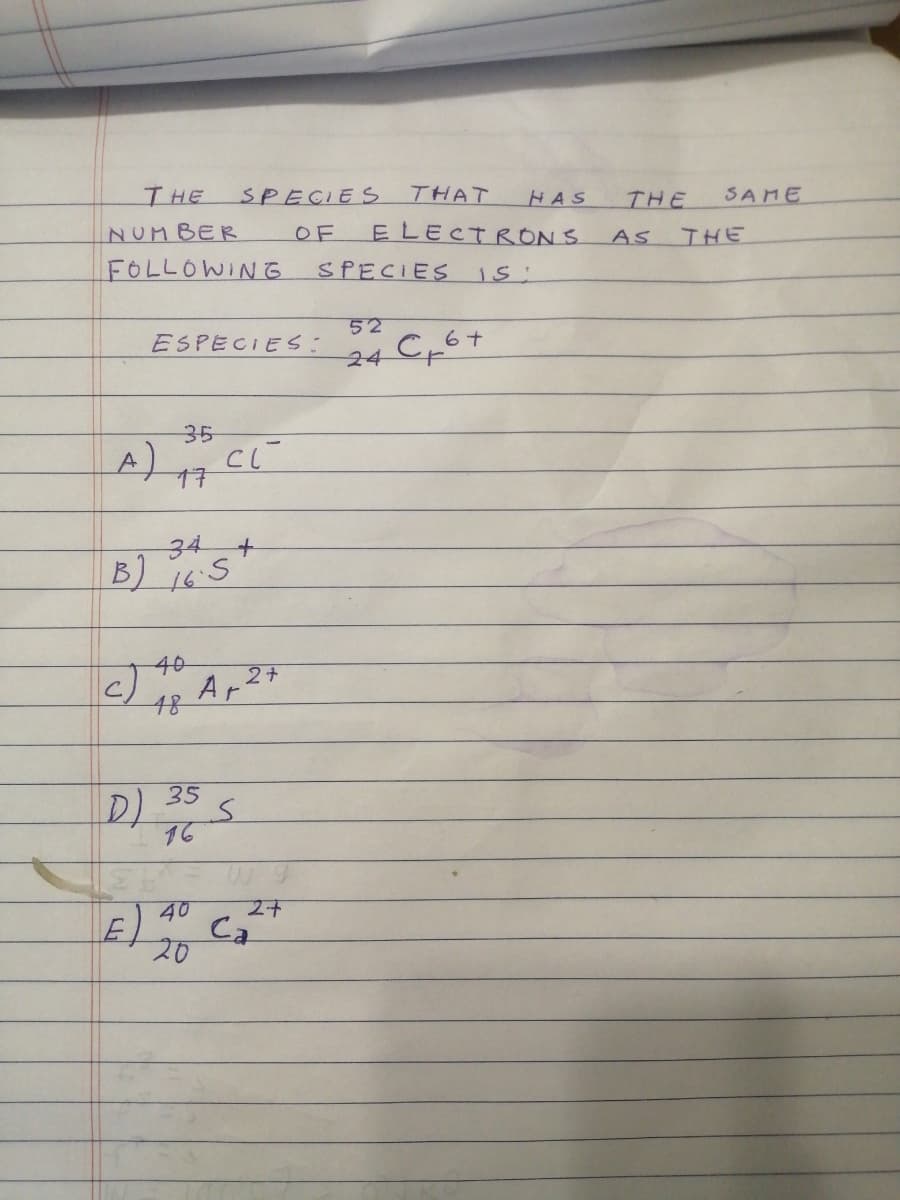 THE SPECIES THAT HAS THE SAME
NUMBER OF ELECTRONS AS THE
FOLLOWING SPECIES IS:
ESPECIES: ⁵²₂₄Cr⁶⁺
A) ³⁵₁₇Cl⁻
B) ³⁴₁₆S⁺
C) ⁴⁰₁₈Ar²⁺
D) ³⁵₁₆S
E) ⁴⁰₂₀Ca²⁺